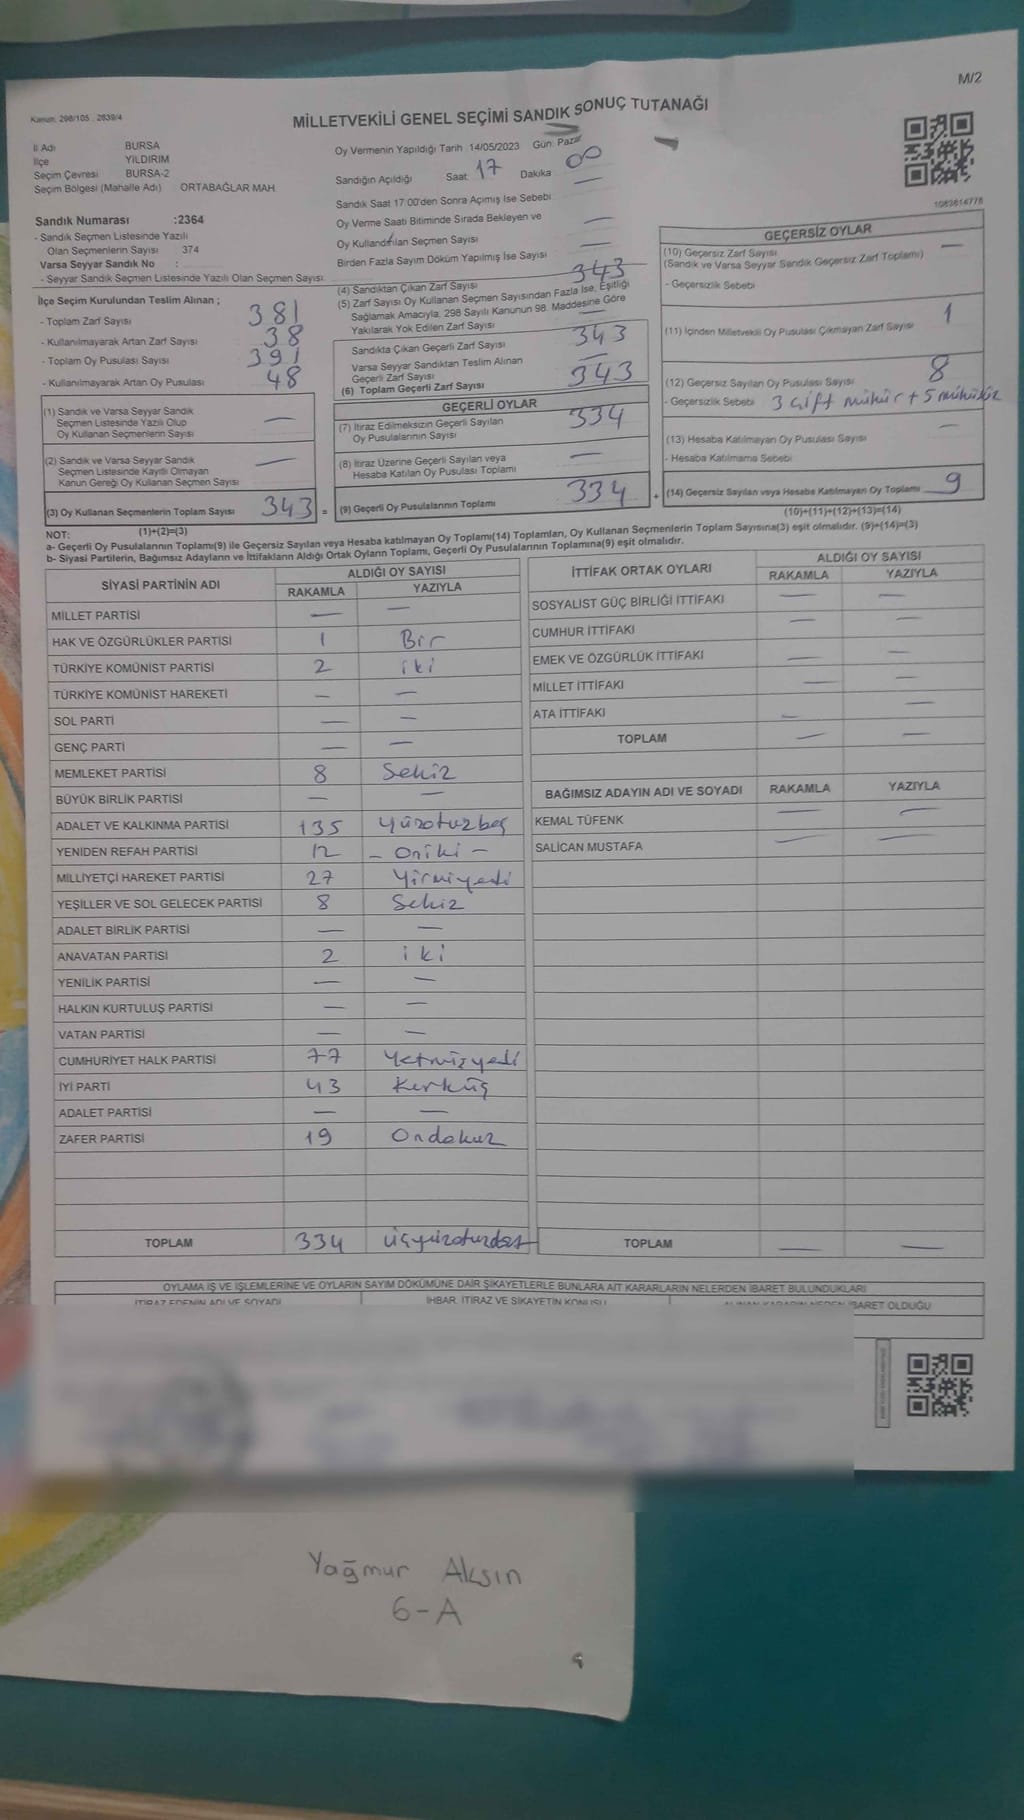 M/2
Kanun: 298/105 , 2839/4
MİLLETVEKİLİ GENEL SEÇİMİ SANDIK SONUÇ TUTANAĞI
İl Adı BURSA
İlçe YILDIRIM
Seçim Çevresi BURSA-2
Seçim Bölgesi (Mahalle Adı) ORTABAĞLAR MAH.
Sandık Numarası :2364
- Sandık Seçmen Listesinde Yazılı
Olan Seçmenlerin Sayısı 374
Varsa Seyyar Sandık No :
- Seyyar Sandık Seçmen Listesinde Yazılı Olan Seçmen Sayısı:
İlçe Seçim Kurulundan Teslim Alınan ;
- Toplam Zarf Sayısı 381
- Kullanılmayarak Artan Zarf Sayısı 38
- Toplam Oy Pusulası Sayısı 391
- Kullanılmayarak Artan Oy Pusulası 48
(1) Sandık ve Varsa Seyyar Sandık
Seçmen Listesinde Yazılı Olup
Oy Kullanan Seçmenlerin Sayısı —
(2) Sandık ve Varsa Seyyar Sandık
Seçmen Listesinde Kayıtlı Olmayan
Kanun Gereği Oy Kullanan Seçmen Sayısı —
(3) Oy Kullanan Seçmenlerin Toplam Sayısı 343 =
(1)+(2)=(3)
Oy Vermenin Yapıldığı Tarih 14/05/2023 Gün: Pazar
Sandığın Açıldığı Saat: 17 Dakika 00
Sandık Saat 17:00'den Sonra Açımış İse Sebebi —
Oy Verme Saati Bitiminde Sırada Bekleyen ve
Oy Kullandırılan Seçmen Sayısı —
Birden Fazla Sayım Döküm Yapılmış İse Sayısı —
(4) Sandıktan Çıkan Zarf Sayısı 343
(5) Zarf Sayısı Oy Kullanan Seçmen Sayısından Fazla İse, Eşitliği
Sağlamak Amacıyla; 298 Sayılı Kanunun 98. Maddesine Göre
Yakılarak Yok Edilen Zarf Sayısı —
Sandıkta Çıkan Geçerli Zarf Sayısı 343
Varsa Seyyar Sandıktan Teslim Alınan
Geçerli Zarf Sayısı —
(6) Toplam Geçerli Zarf Sayısı 343
GEÇERLİ OYLAR
(7) İtiraz Edilmeksizin Geçerli Sayılan
Oy Pusulalarının Sayısı 334
(8) İtiraz Üzerine Geçerli Sayılan veya
Hesaba Katılan Oy Pusulası Toplamı —
(9) Geçerli Oy Pusulalarının Toplamı 334 +
1082614778
GEÇERSİZ OYLAR
(10) Geçersiz Zarf Sayısı —
(Sandık ve Varsa Seyyar Sandık Geçersiz Zarf Toplamı)
- Geçersizlik Sebebi
(11) İçinden Milletvekili Oy Pusulası Çıkmayan Zarf Sayısı 1
(12) Geçersiz Sayılan Oy Pusulası Sayısı 8
- Geçersizlik Sebebi 3 çift mühür + 5 mühürsüz
(13) Hesaba Katılmayan Oy Pusulası Sayısı —
- Hesaba Katılmama Sebebi
(14) Geçersiz Sayılan veya Hesaba Katılmayan Oy Toplamı 9
(10)+(11)+(12)+(13)=(14)
NOT:
a- Geçerli Oy Pusulalarının Toplamı(9) ile Geçersiz Sayılan veya Hesaba katılmayan Oy Toplamı(14) Toplamları, Oy Kullanan Seçmenlerin Toplam Sayısına(3) eşit olmalıdır. (9)+(14)=(3)
b- Siyasi Partilerin, Bağımsız Adayların ve İttifakların Aldığı Ortak Oyların Toplamı, Geçerli Oy Pusulalarının Toplamına(9) eşit olmalıdır.
SİYASİ PARTİNİN ADI ALDIĞI OY SAYISI
RAKAMLA YAZIYLA
MİLLET PARTİSİ — —
HAK VE ÖZGÜRLÜKLER PARTİSİ 1 Bir
TÜRKİYE KOMÜNİST PARTİSİ 2 iki
TÜRKİYE KOMÜNİST HAREKETİ — —
SOL PARTİ — —
GENÇ PARTİ — —
MEMLEKET PARTİSİ 8 Sekiz
BÜYÜK BİRLİK PARTİSİ — —
ADALET VE KALKINMA PARTİSİ 135 Yüzotuzbeş
YENİDEN REFAH PARTİSİ 12 - Oniki -
MİLLİYETÇİ HAREKET PARTİSİ 27 Yirmiyedi
YEŞİLLER VE SOL GELECEK PARTİSİ 8 Sekiz
ADALET BİRLİK PARTİSİ — —
ANAVATAN PARTİSİ 2 iki
YENİLİK PARTİSİ — —
HALKIN KURTULUŞ PARTİSİ — —
VATAN PARTİSİ — —
CUMHURİYET HALK PARTİSİ 77 Yetmişyedi
İYİ PARTİ 43 Kırküç
ADALET PARTİSİ — —
ZAFER PARTİSİ 19 Ondokuz
TOPLAM 334 üçyüzotuzdört
İTTİFAK ORTAK OYLARI ALDIĞI OY SAYISI
RAKAMLA YAZIYLA
SOSYALİST GÜÇ BİRLİĞİ İTTİFAKI — —
CUMHUR İTTİFAKI — —
EMEK VE ÖZGÜRLÜK İTTİFAKI — —
MİLLET İTTİFAKI — —
ATA İTTİFAKI — —
TOPLAM — —
BAĞIMSIZ ADAYIN ADI VE SOYADI RAKAMLA YAZIYLA
KEMAL TÜFENK — —
SALİCAN MUSTAFA — —
TOPLAM — —
OYLAMA İŞ VE İŞLEMLERİNE VE OYLARIN SAYIM DÖKÜMÜNE DAİR ŞİKAYETLERLE BUNLARA AİT KARARLARIN NELERDEN İBARET BULUNDUKLARI
İTİRAZ EDENİN ADI VE SOYADI İHBAR, İTİRAZ VE ŞİKAYETİN KONUSU ALINAN KARARIN NEDEN İBARET OLDUĞU
Yağmur Aksın
6-A